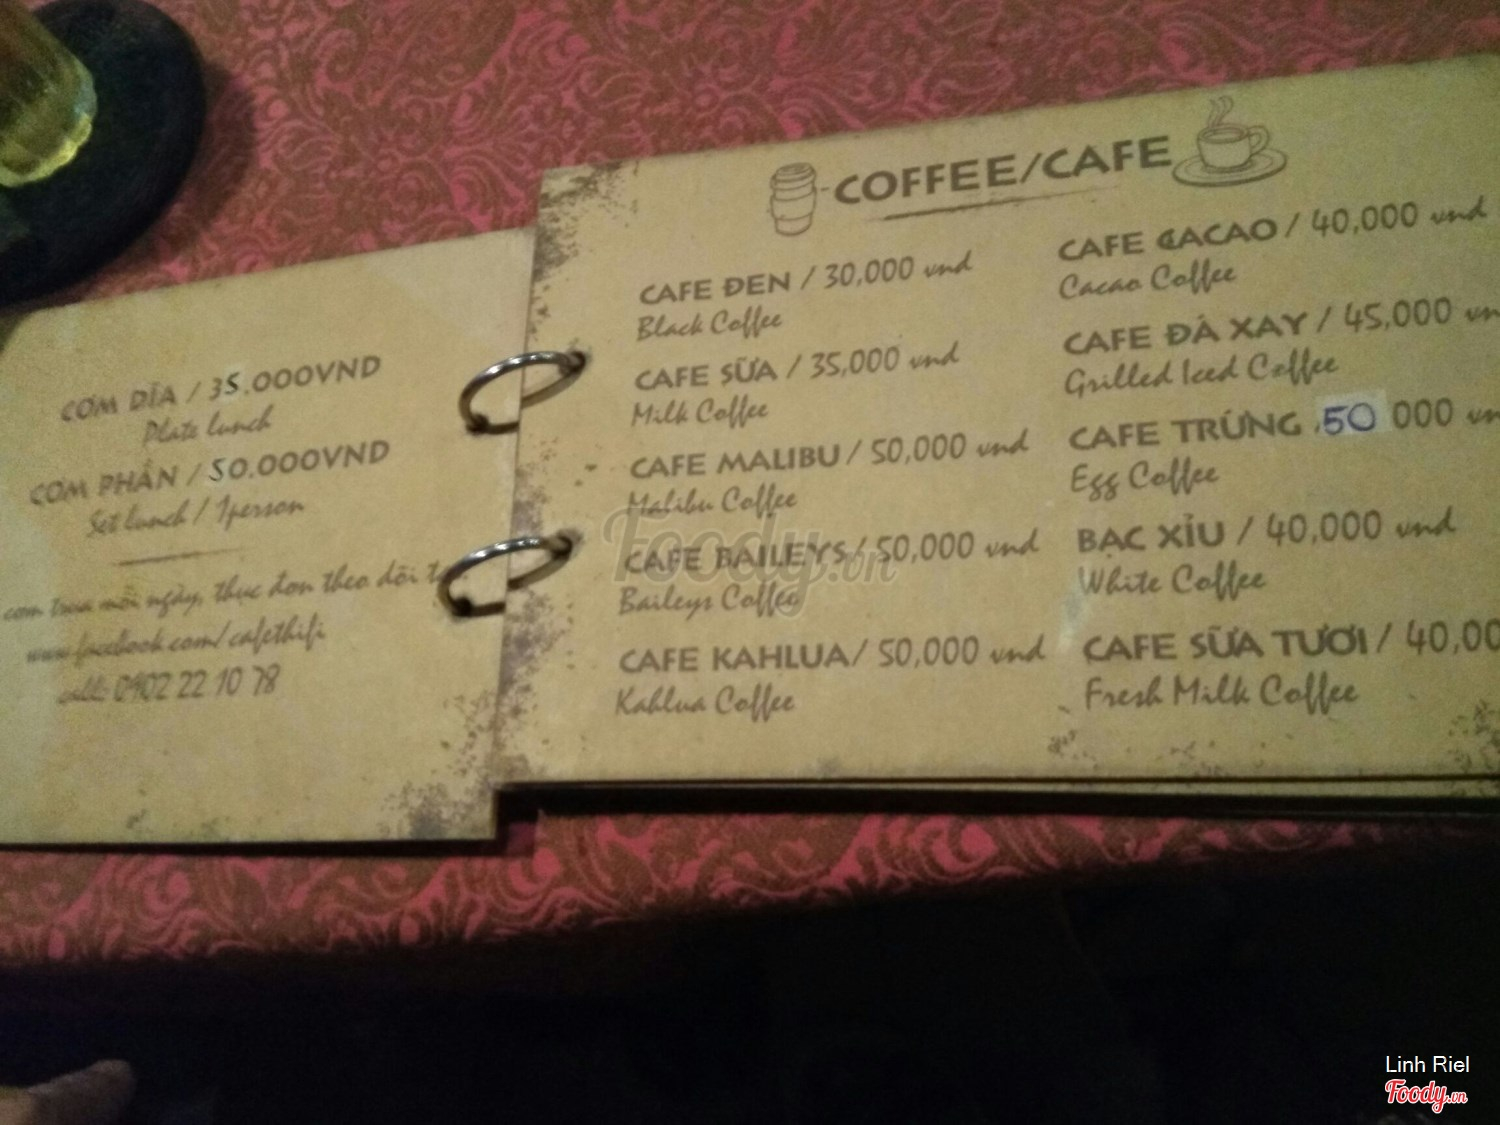 CƠM DĨA / 35.000VND
Plate lunch
CƠM PHẦN / 50.000VND
Set lunch / 1person
cơm trưa mỗi ngày, thực đơn theo dõi
www.facebook.com/cafethifi
call: 0902 22 10 78
COFFEE/CAFE
CAFE ĐEN / 30,000 vnd
Black Coffee
CAFE SỮA / 35,000 vnd
Milk Coffee
CAFE MALIBU / 50,000 vnd
Malibu Coffee
CAFE BAILEYS / 50,000 vnd
Baileys Coffee
CAFE KAHLUA / 50,000 vnd
Kahlua Coffee
CAFE CACAO / 40,000 vnd
Cacao Coffee
CAFE ĐÁ XAY / 45,000
Grilled Iced Coffee
CAFE TRỨNG 50 000
Egg Coffee
BẠC XỈU / 40,000 vnd
White Coffee
CAFE SỮA TƯƠI / 40,00
Fresh Milk Coffee
Foody.vn
Linh Riel
Foody.vn